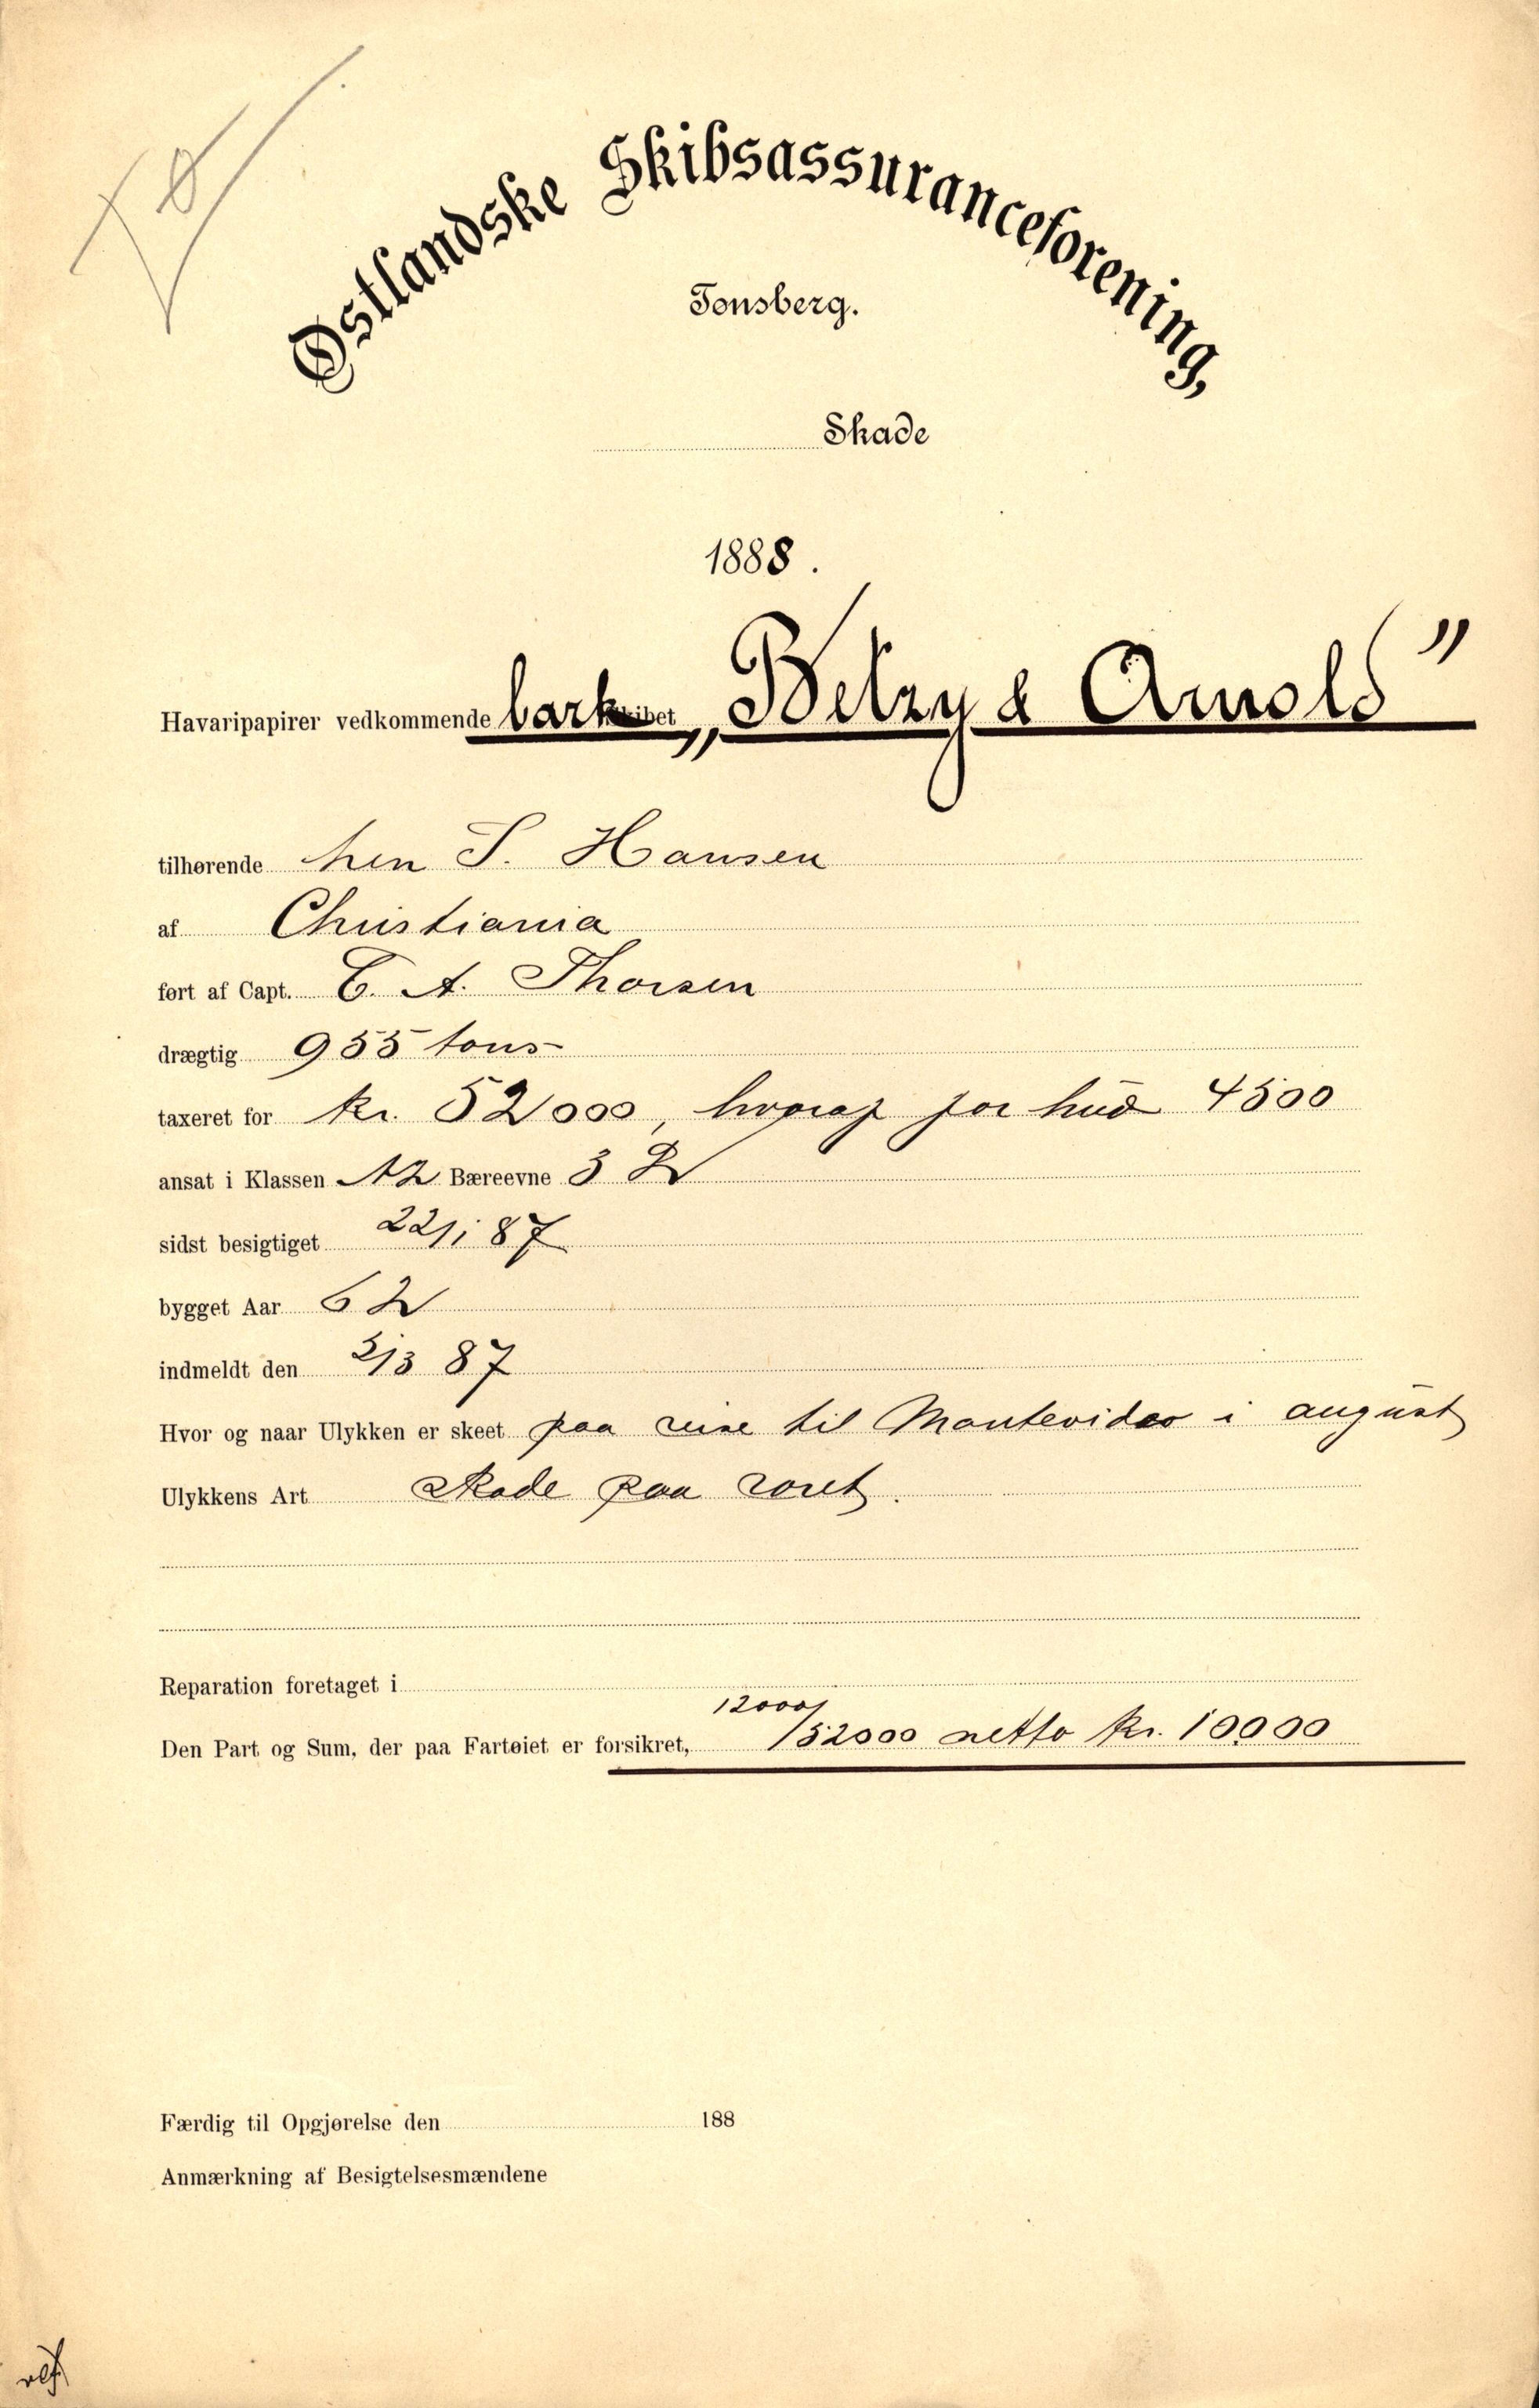 Østlandske Skibsassuranceforening,
Tønsberg.
Skade
1888.
Havaripapirer vedkommende bark „Betzy & Arnold”
tilhørende herr S. Hansen
af Christiania
ført af Capt. C. A. Thorsen
drægtig 955 tons
taxeret for kr. 52000, hvoraf for hud 4500
ansat i Klassen A2 Bæreevne 3
sidst besigtiget 22/1 87
bygget Aar 62
indmeldt den 2/3 87
Hvor og naar Ulykken er skeet paa reise til Montevideo i august
Ulykkens Art Skade paa roret.
Reparation foretaget i
Den Part og Sum, der paa Fartøiet er forsikret, 12000/52000 netto kr. 10000
Færdig til Opgjørelse den 188
Anmærkning af Besigtelsesmændene